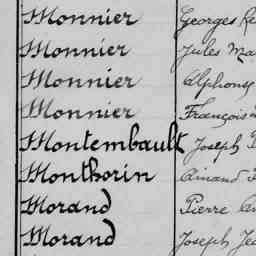 Monnier Georges Re
Monnier Jules Ma
Monnier Alphons
Monnier François
Montembault Joseph
Monthorin Amand
Morand Pierre
Morand Joseph Jea